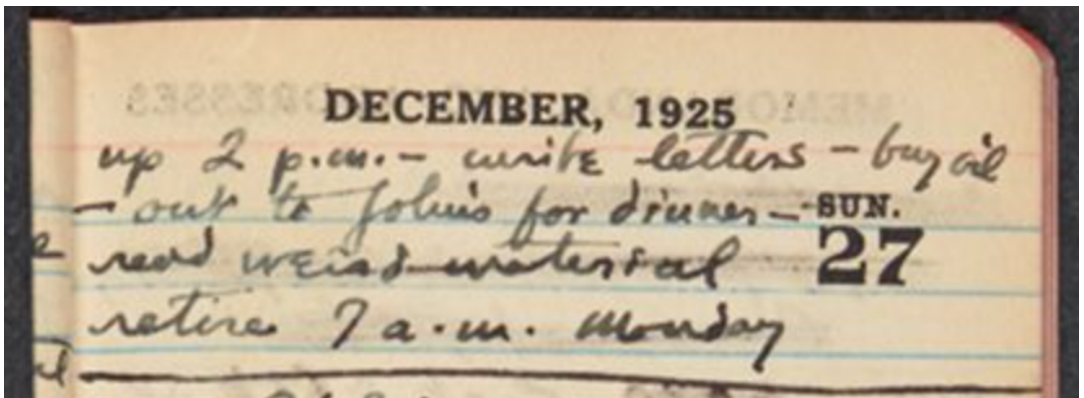 DECEMBER, 1925
up 2 p.m. – write letters – buy oil
– out to John's for dinner –
SUN.
27
read weird material
retire 7 a.m. Monday